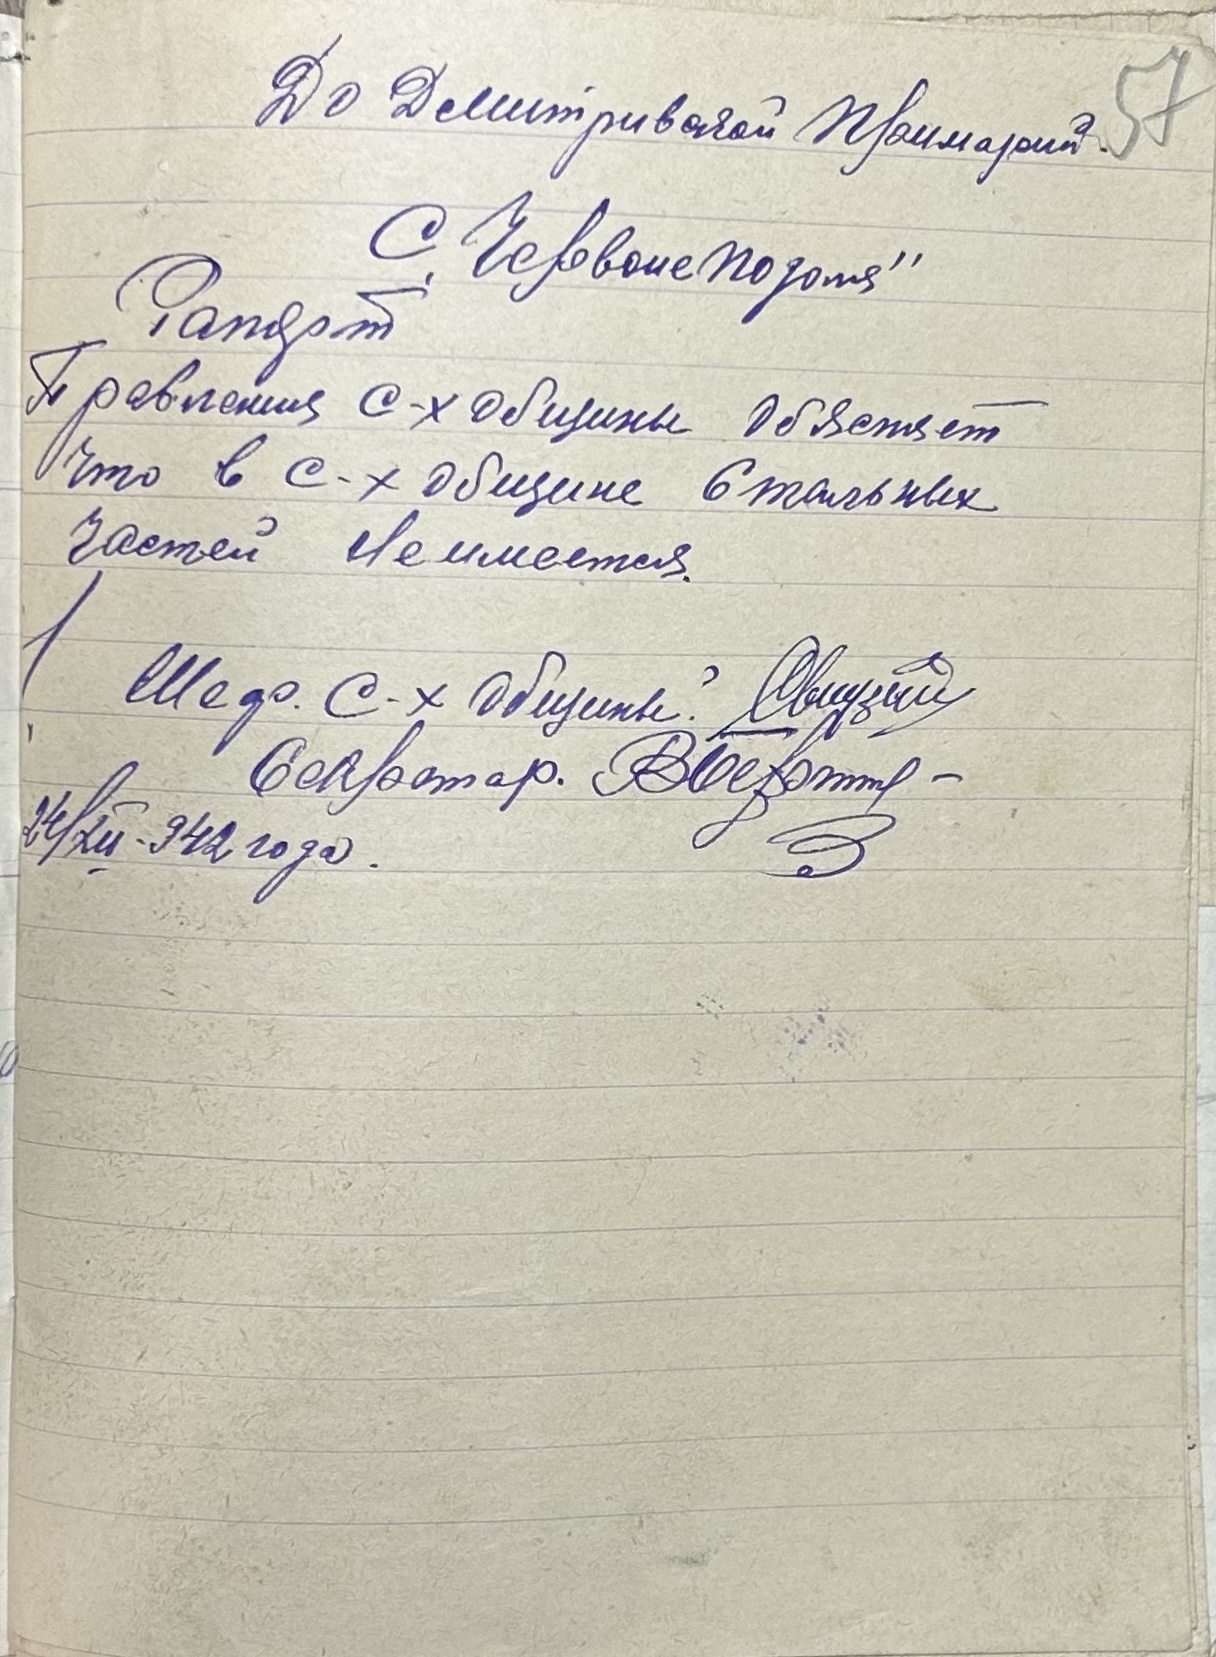 57
До Дмитривской Примарий.
С. Червоне Подоля"
Рапорт
Правления с-х общины обясняет
что в с-х общине Стальных
частей не имеется.
Шеф. С-х общины:
Секретар.
24/XII-942 года.